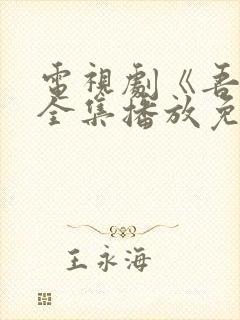 電視劇《吾
全集播放免
王永海